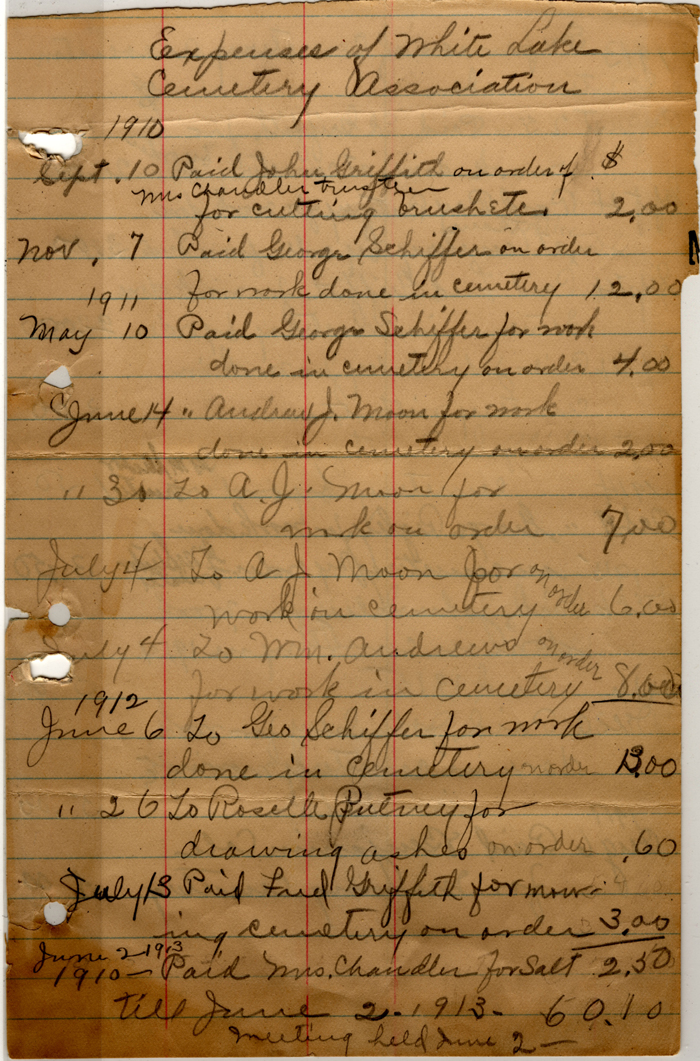 Expenses of White Lake
Cemetery Association
1910
Sept. 10 Paid John Griffith on order of $
Mrs Chandler trustee
for cutting brush etc. 2.00
Nov. 7 Paid George Schiffer on order
for work done in cemetery 12.00
1911
May 10 Paid George Schiffer for work
done in cemetery on order 4.00
June 14 " Andrew J. Moon for work
done in cemetery on order 2.00
" 30 To A. J. Moon for
work on order 7.00
July 4 To A J Moon for on order
work in cemetery 6.00
July 4 To Wm. Andrews on order
for work in cemetery 8.00
1912
June 6 To Geo Schiffer for work
done in cemetery on order 13.00
" 26 To Roselle Putney for
drawing ashes on order .60
July 13 Paid Fred Griffith for mow-
ing cemetery on order 3.00
June 2 1913
1910 — Paid Mrs. Chandler for Salt 2.50
till June 2 - 1913 - 60.10
meeting held June 2 —